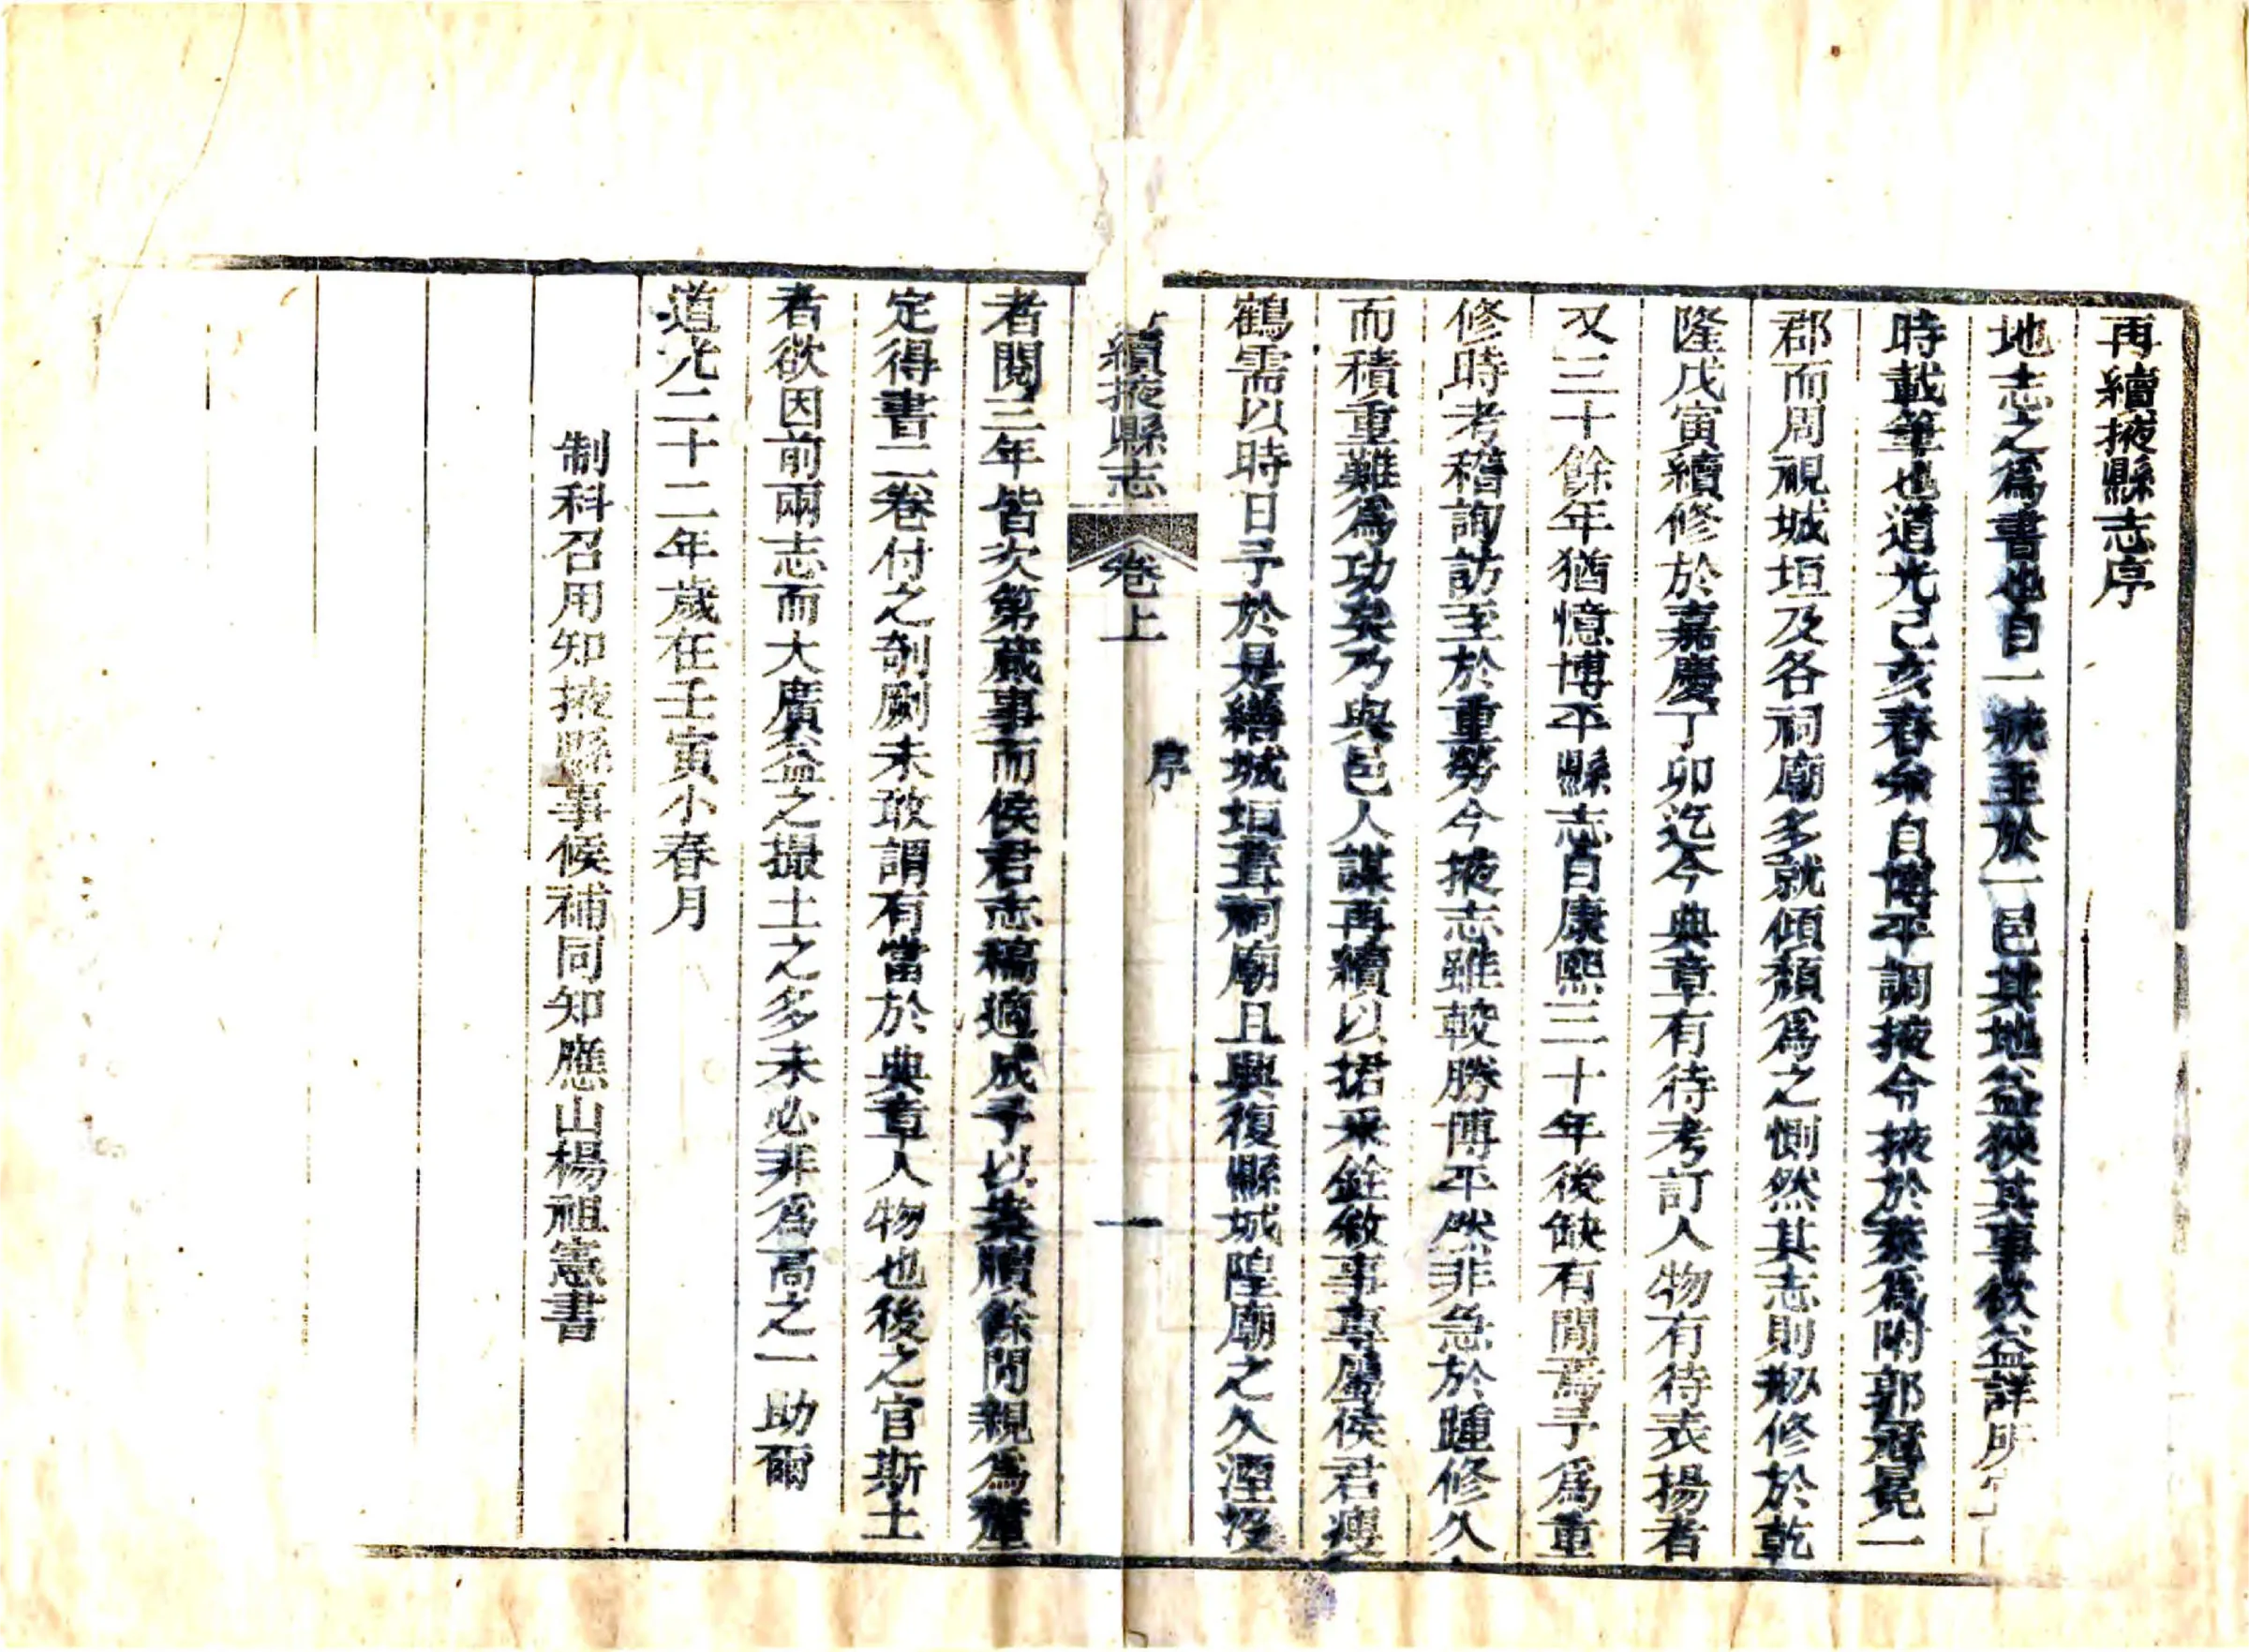 再續掖縣志序
地志之爲書也自一統至於一邑其地益狹其事欲益詳所
時載筆也道光己亥春余自博平調掖令掖於萊爲附郭冠冕一
郡而周視城垣及各祠廟多就傾頽爲之惻然其志則刱修於乾
隆戊寅續修於嘉慶丁卯迄今典章有待考訂人物有待表揚者
又三十餘年猶憶博平縣志自康熙三十年後缺有間焉予爲重
修時考稽詢訪至於重勞今掖志雖較勝博平然非急於踵修久
而積重難爲功矣乃與邑人謀再續以捃釆銓敘事專屬侯君
鶴需以時日予於是繕城垣葺祠廟且興復縣城隍廟之久湮沒
續掖縣志 卷上 序 一
者閱三年皆次第蕆事而侯君志稿適成予以案牘餘閒親爲釐
定得書二卷付之剞劂未敢謂有當於典章人物也後之官斯土
者欲因前兩志而大廣益之撮土之多未必非爲高之一助爾
道光二十二年歲在壬寅小春月
制科召用知掖縣事候補同知應山楊祖憲書